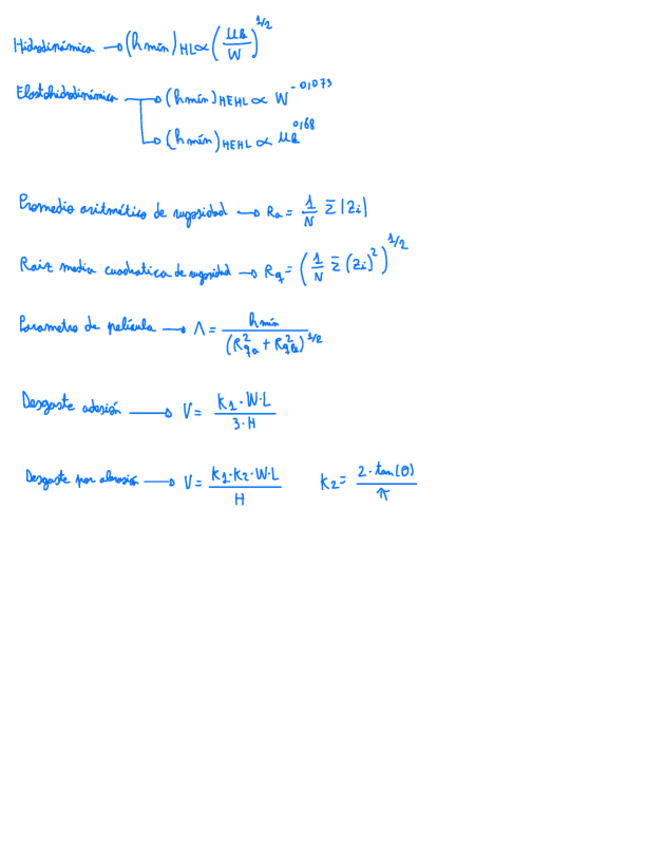 Hidrodinámica → (h mín)HL ∝ (μb/W)^1/2
Elastohidrodinámica → (h mín)HEHL ∝ W^-0,073
→ (h mín)HEHL ∝ μb^0,68
Promedio aritmético de rugosidad → Ra = 1/N Σ |zi|
Raiz media cuadratica de rugosidad → Rq = (1/N Σ (zi)^2)^1/2
Parametro de película → Λ = h mín / (Rqa^2 + Rqb^2)^1/2
Desgaste adesión → V = k1·W·L / 3·H
Desgaste por abrasión → V = k1·k2·W·L / H k2 = 2·tan(θ) / π